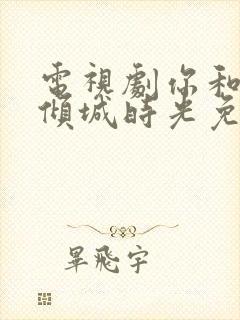 電視劇你和
傾城時光免
畢飛宇